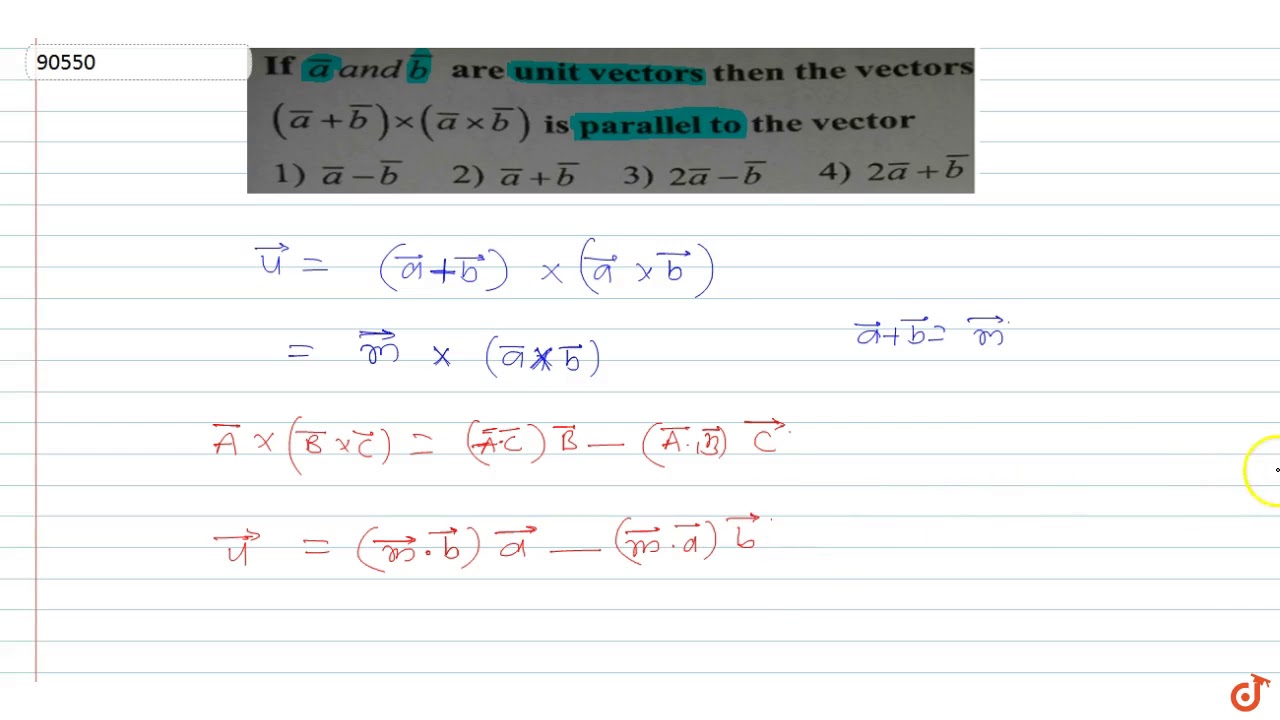 90550
If a̅ and b̅ are unit vectors then the vectors
(a̅ + b̅) × (a̅ × b̅) is parallel to the vector
1) a̅ − b̅ 2) a̅ + b̅ 3) 2a̅ − b̅ 4) 2a̅ + b̅
u⃗ = (a⃗ + b⃗) × (a⃗ × b⃗)
= m⃗ × (a̅ × b̅)
a⃗ + b⃗ = m⃗
A̅ × (B̅ × C̅) = (A̅·C̅) B̅ — (A̅·B̅) C⃗
u⃗ = (m⃗·b⃗) a⃗ — (m⃗·a⃗) b⃗